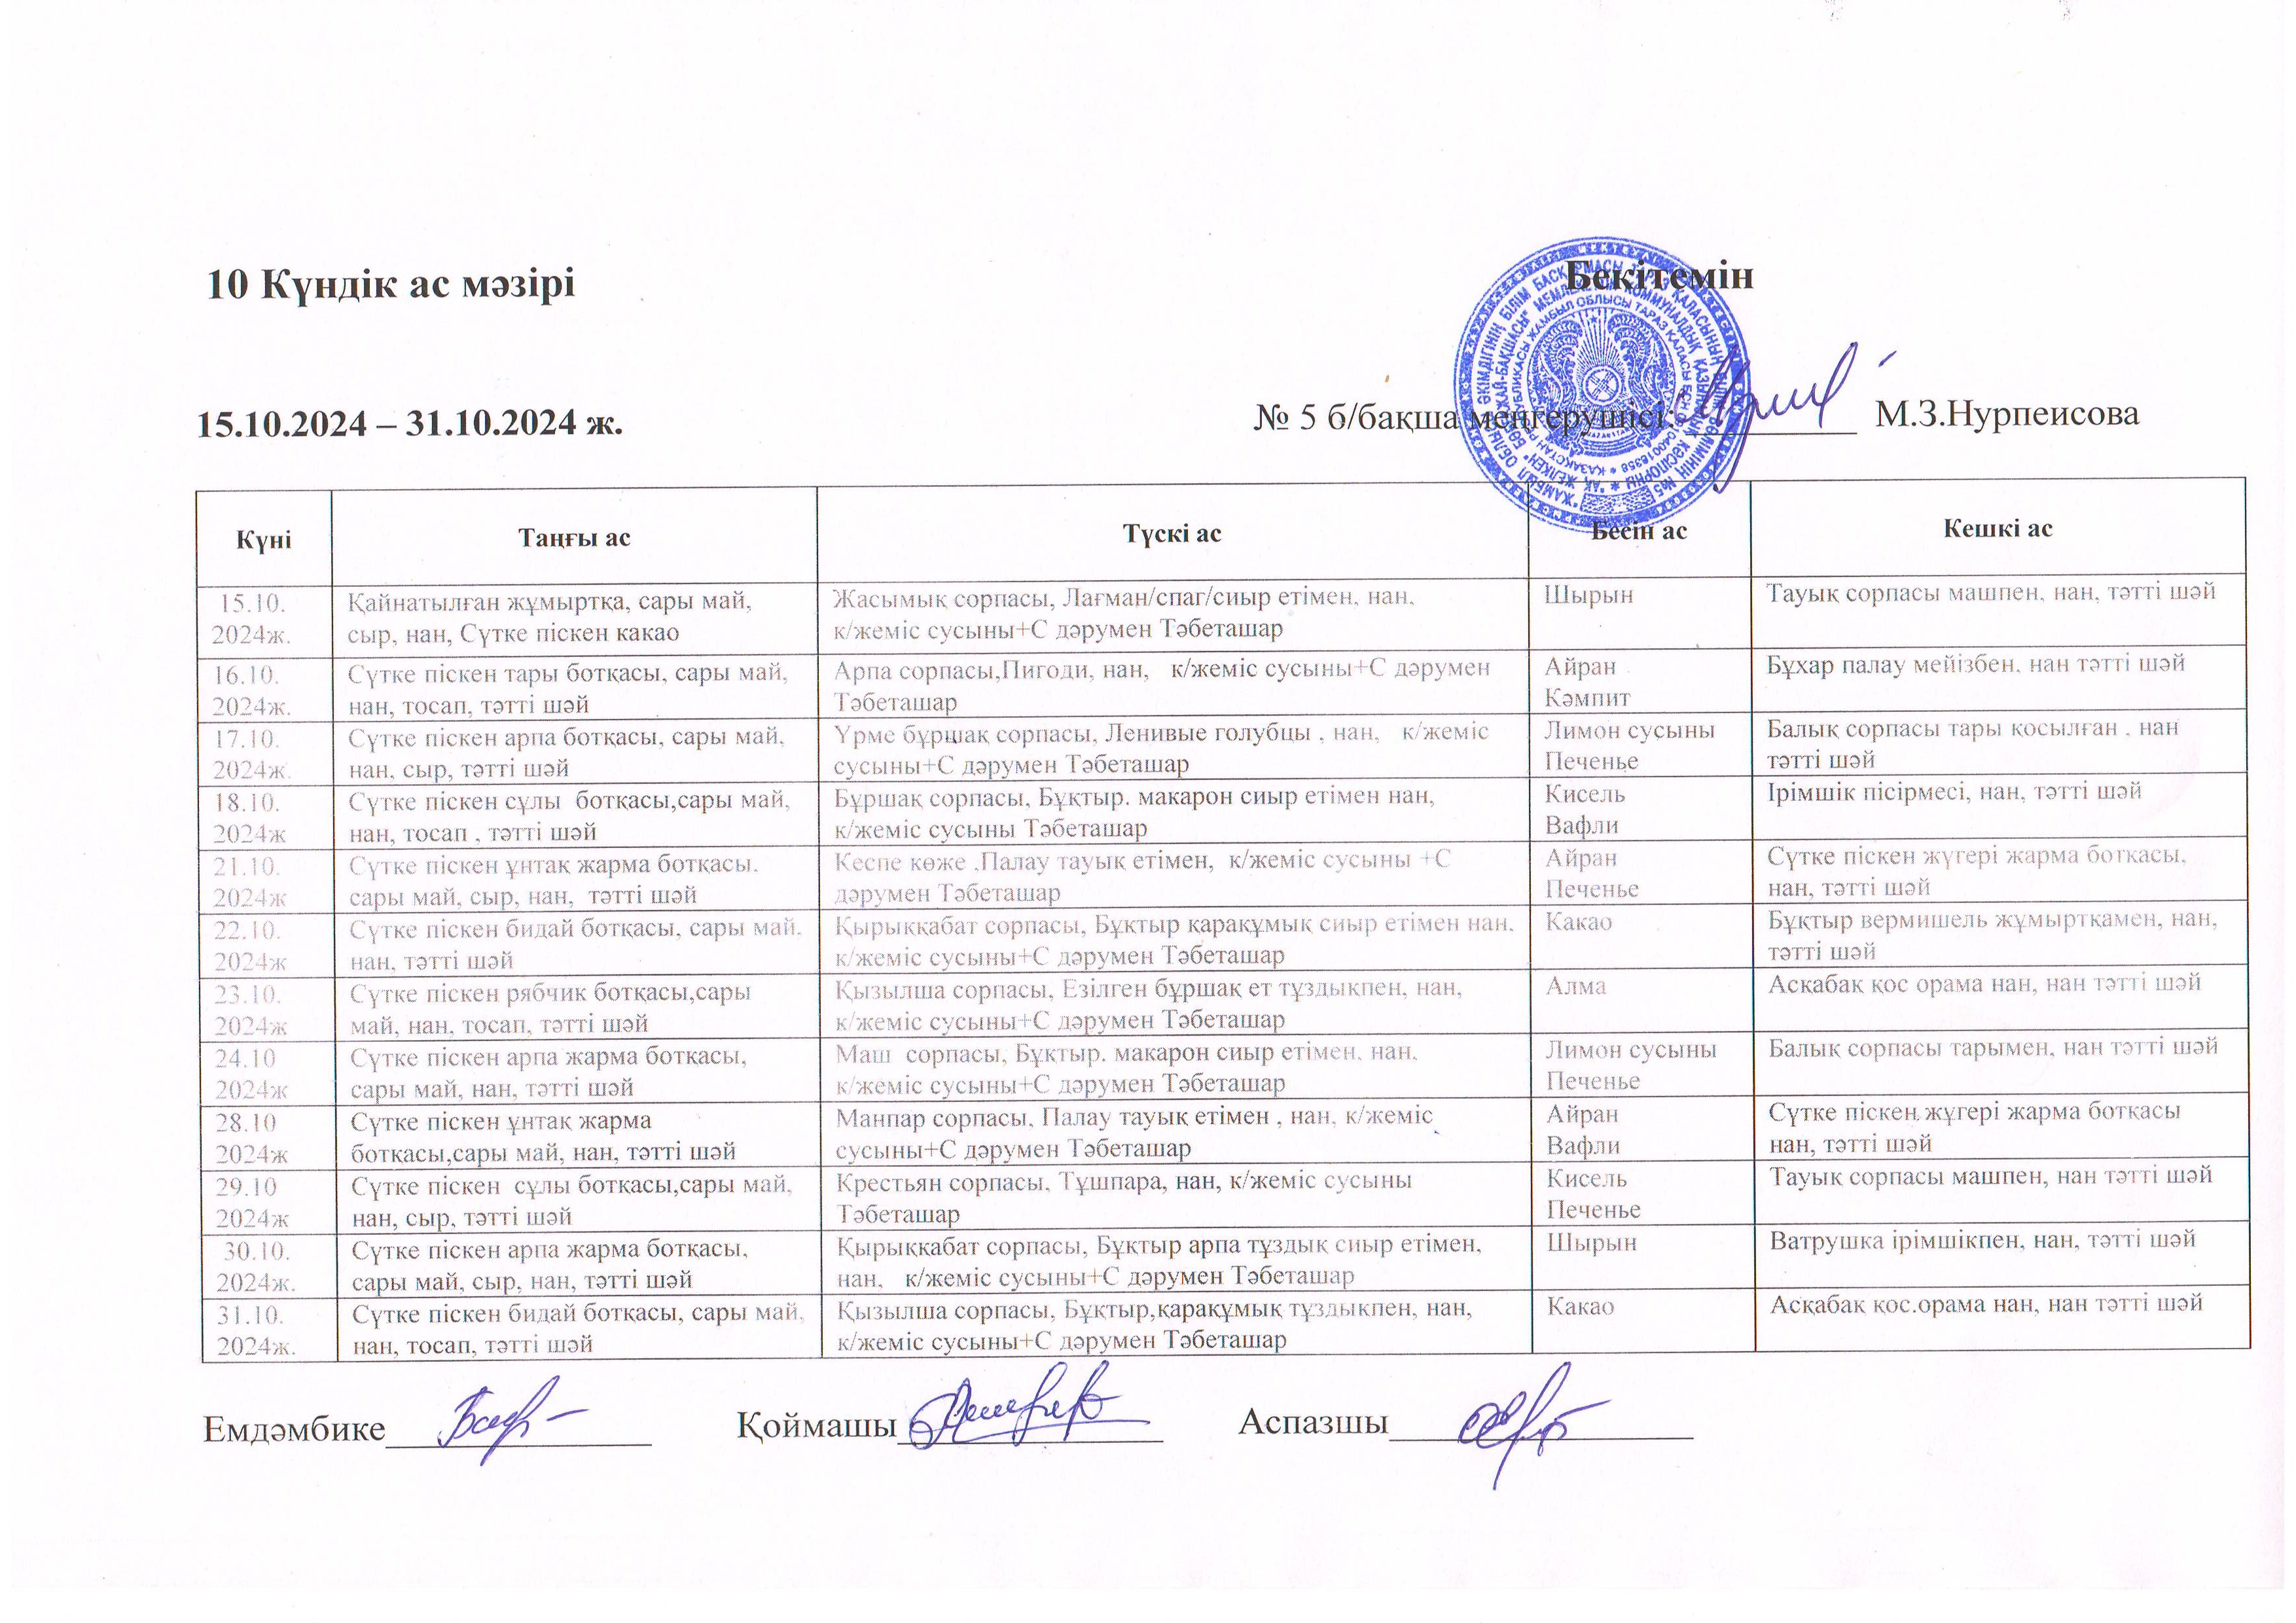 10 Күндік ас мәзірі
Бекітемін
15.10.2024 – 31.10.2024 ж.
№ 5 б/бақша меңгерушісі: М.З.Нурпеисова
Күні Таңғы ас Түскі ас Бесін ас Кешкі ас
15.10. Қайнатылған жұмыртқа, сары май, Жасымық сорпасы, Лағман/спаг/сиыр етімен, нан, Шырын Тауық сорпасы машпен, нан, тәтті шәй
2024ж. сыр, нан, Сүтке піскен какао к/жеміс сусыны+С дәрумен Тәбеташар
16.10. Сүтке піскен тары ботқасы, сары май, Арпа сорпасы,Пигоди, нан, к/жеміс сусыны+С дәрумен Айран Бұхар палау мейізбен, нан тәтті шәй
2024ж. нан, тосап, тәтті шәй Тәбеташар Кәмпит
17.10. Сүтке піскен арпа ботқасы, сары май, Үрме бұршақ сорпасы, Ленивые голубцы , нан, к/жеміс Лимон сусыны Балық сорпасы тары қосылған , нан
2024ж. нан, сыр, тәтті шәй сусыны+С дәрумен Тәбеташар Печенье тәтті шәй
18.10. Сүтке піскен сұлы ботқасы,сары май, Бұршақ сорпасы, Бұқтыр. макарон сиыр етімен нан, Кисель Ірімшік пісірмесі, нан, тәтті шәй
2024ж нан, тосап , тәтті шәй к/жеміс сусыны Тәбеташар Вафли
21.10. Сүтке піскен ұнтақ жарма ботқасы, Кеспе көже ,Палау тауық етімен, к/жеміс сусыны +С Айран Сүтке піскен жүгері жарма ботқасы,
2024ж сары май, сыр, нан, тәтті шәй дәрумен Тәбеташар Печенье нан, тәтті шәй
22.10. Сүтке піскен бидай ботқасы, сары май, Қырыққабат сорпасы, Бұқтыр қарақұмық сиыр етімен нан, Какао Бұқтыр вермишель жұмыртқамен, нан,
2024ж нан, тәтті шәй к/жеміс сусыны+С дәрумен Тәбеташар тәтті шәй
23.10. Сүтке піскен рябчик ботқасы,сары Қызылша сорпасы, Езілген бұршақ ет тұздықпен, нан, Алма Асқабақ қос орама нан, нан тәтті шәй
2024ж май, нан, тосап, тәтті шәй к/жеміс сусыны+С дәрумен Тәбеташар
24.10 Сүтке піскен арпа жарма ботқасы, Маш сорпасы, Бұқтыр. макарон сиыр етімен, нан, Лимон сусыны Балық сорпасы тарымен, нан тәтті шәй
2024ж сары май, нан, тәтті шәй к/жеміс сусыны+С дәрумен Тәбеташар Печенье
28.10 Сүтке піскен ұнтақ жарма Манпар сорпасы, Палау тауық етімен , нан, к/жеміс Айран Сүтке піскен жүгері жарма ботқасы
2024ж ботқасы,сары май, нан, тәтті шәй сусыны+С дәрумен Тәбеташар Вафли нан, тәтті шәй
29.10 Сүтке піскен сұлы ботқасы,сары май, Крестьян сорпасы, Тұшпара, нан, к/жеміс сусыны Кисель Тауық сорпасы машпен, нан тәтті шәй
2024ж нан, сыр, тәтті шәй Тәбеташар Печенье
30.10. Сүтке піскен арпа жарма ботқасы, Қырыққабат сорпасы, Бұқтыр арпа тұздық сиыр етімен, Шырын Ватрушка ірімшікпен, нан, тәтті шәй
2024ж. сары май, сыр, нан, тәтті шәй нан, к/жеміс сусыны+С дәрумен Тәбеташар
31.10. Сүтке піскен бидай ботқасы, сары май, Қызылша сорпасы, Бұқтыр,қарақұмық тұздықпен, нан, Какао Асқабақ қос.орама нан, нан тәтті шәй
2024ж. нан, тосап, тәтті шәй к/жеміс сусыны+С дәрумен Тәбеташар
Емдәмбике Қоймашы Аспазшы